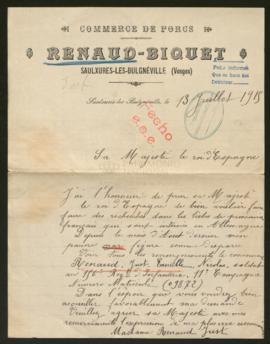 COMMERCE DE PORCS
RENAUD-BIQUET
SAULXURES-LES-BULGNÉVILLE (Vosges)
Saulxures-lès-Bulgnéville, le 13 Juillet 1915
Hecho
Sa Majesté le roi d'Espagne
J'ai l'honneur de prier sa Majesté
le roi d'Espagne de bien vouloir faire
faire des recherches dans les listes de prisonniers
français qui sont internés en Allemagne
Depuis le mois d'Août dernier mon
figure comme disparu
Renaud, Just, Camille, Nicolas, soldat
au Reg. d'Infanterie, 11e Compagnie
Numéro Matricule
Dans l'espoir que vous voudrez bien
accueillir favorablement ma demande
Veuillez agréer sa Majesté avec mes
remerciements l'expression de ma plus
Madame Renaud Just